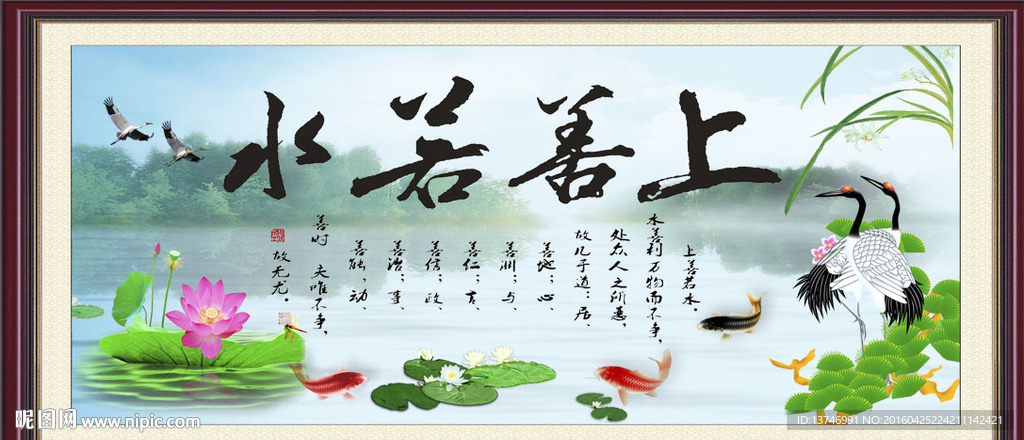 上善若水
上善若水。
水善利万物而不争,
处众人之所恶,
故几于道:居、
善地;心、
善渊;与、
善仁;言、
善信;政、
善治;事、
善能;动、
善时 夫唯不争,
故无尤。
昵图网 www.nipic.com
ID:13746991 NO:20160425224211142421